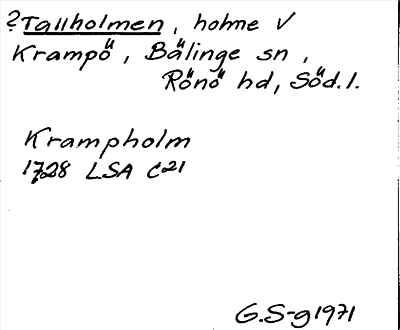 ?Tallholmen, holme V
Krampö, Bälinge sn,
Rönö hd, Söd.l.
Krampholm
1728 LSA C21
G.S-g 1971